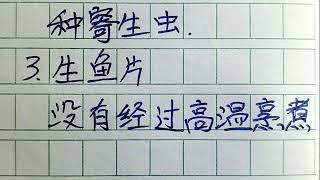 种寄生虫.
3.生鱼片
没有经过高温烹煮